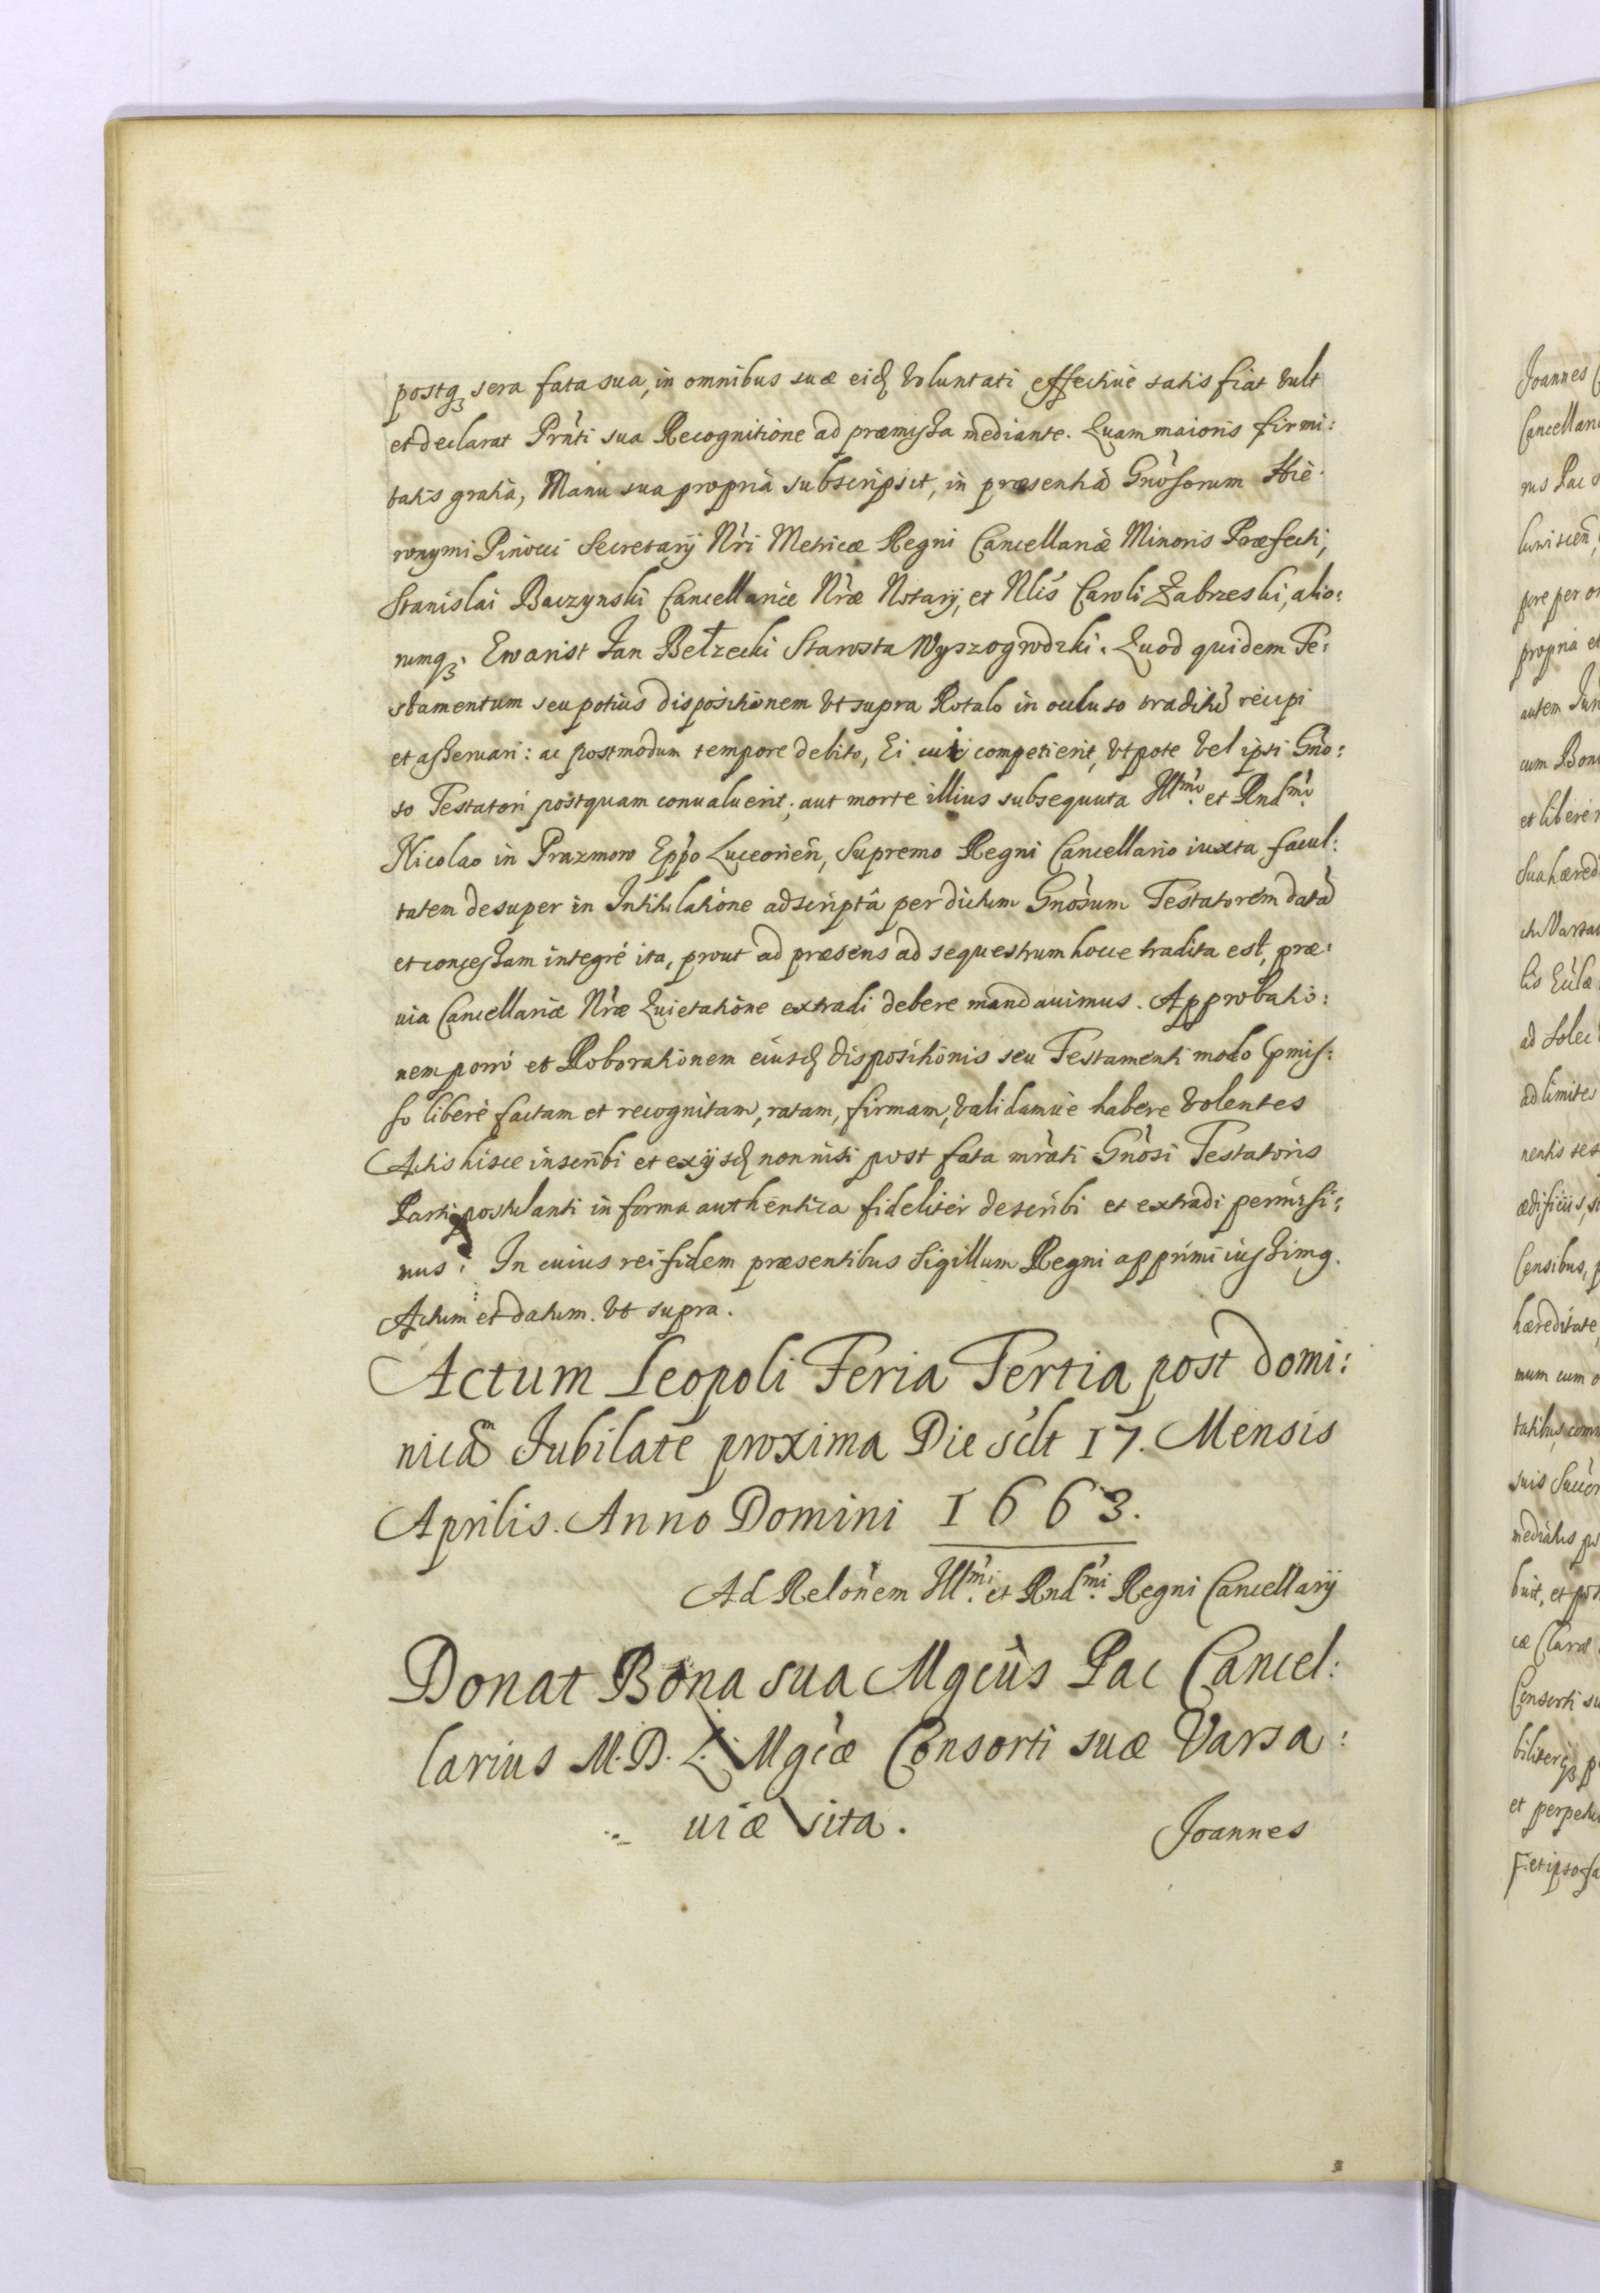 postq3 sera fata sua, in omnibus suæ eid voluntati effectiuè satisfiat vult
et declarat Prn̄ti sua Recognitione ad præmissa mediante. Quam maioris firmi:
tatis gratiâ, Manu sua propriâ subscripsit, in præsentiâ Gnōsorum Hie:
ronymi Pinocci Secretarij Nr̄i Metricæ Regni Cancellariæ Minoris Præfecti,
Stanislai Baczynski Cancellariæ Nr̄æ Notarij, et Nlis Caroli Zabrzeski, alio:
rumq3. Ewarist Jan Bełzecki Starosta Wyszogrodzki. Quod quidem Te:
stamentum seu potius dispositionem vt supra Rotalo in ocluso traditū recipi
et asseruari: ac postmodum tempore debito, Ei cui competierit, vtpote vel ipsi Gno:
so Testatori postquam conualuerit, aut morte illius subsequuta Illmo. et Rndmo.
Nicolao in Prazmow Epp̄o Luceorien̄, Supremo Regni Cancellario iuxta facul:
tatem desuper in Intitulatione adscriptâ per dictum Gnōsum Testatorem datā
et concessam integrè ita, prout ad præsens ad sequestrum hocce tradita est, præ:
uia Cancellariæ Nr̄æ Quietatione extradi debere mandauimus. Approbatio:
nem porrò et Roborationem eiusd dispositionis seu Testamenti modo præmis:
so liberè factam et recognitam, ratam, firmam, validamuè habere volentes
Actis hisce inscribi et exijsd nonnisi post fata mr̄ati Gnōsi Testatoris
Parti postulanti in forma authentica fideliter describi et extradi permisi:
mus. In cuius rei fidem præsentibus Sigillum Regni apprimi iussimq.
Actum et datum. vt supra.
Actum Leopoli Feria Tertia post domi:
nicam Jubilate proxima Die sclt 17. Mensis
Aprilis. Anno Domini 1663.
Ad Relōnem Illmi. et Rndmi. Regni Cancellarij
Donat Bona sua Mgcūs Pac Cancel:
larius M. D. L. Mgcæ Consorti suæ Varsa:
uiæ sita.
Joannes